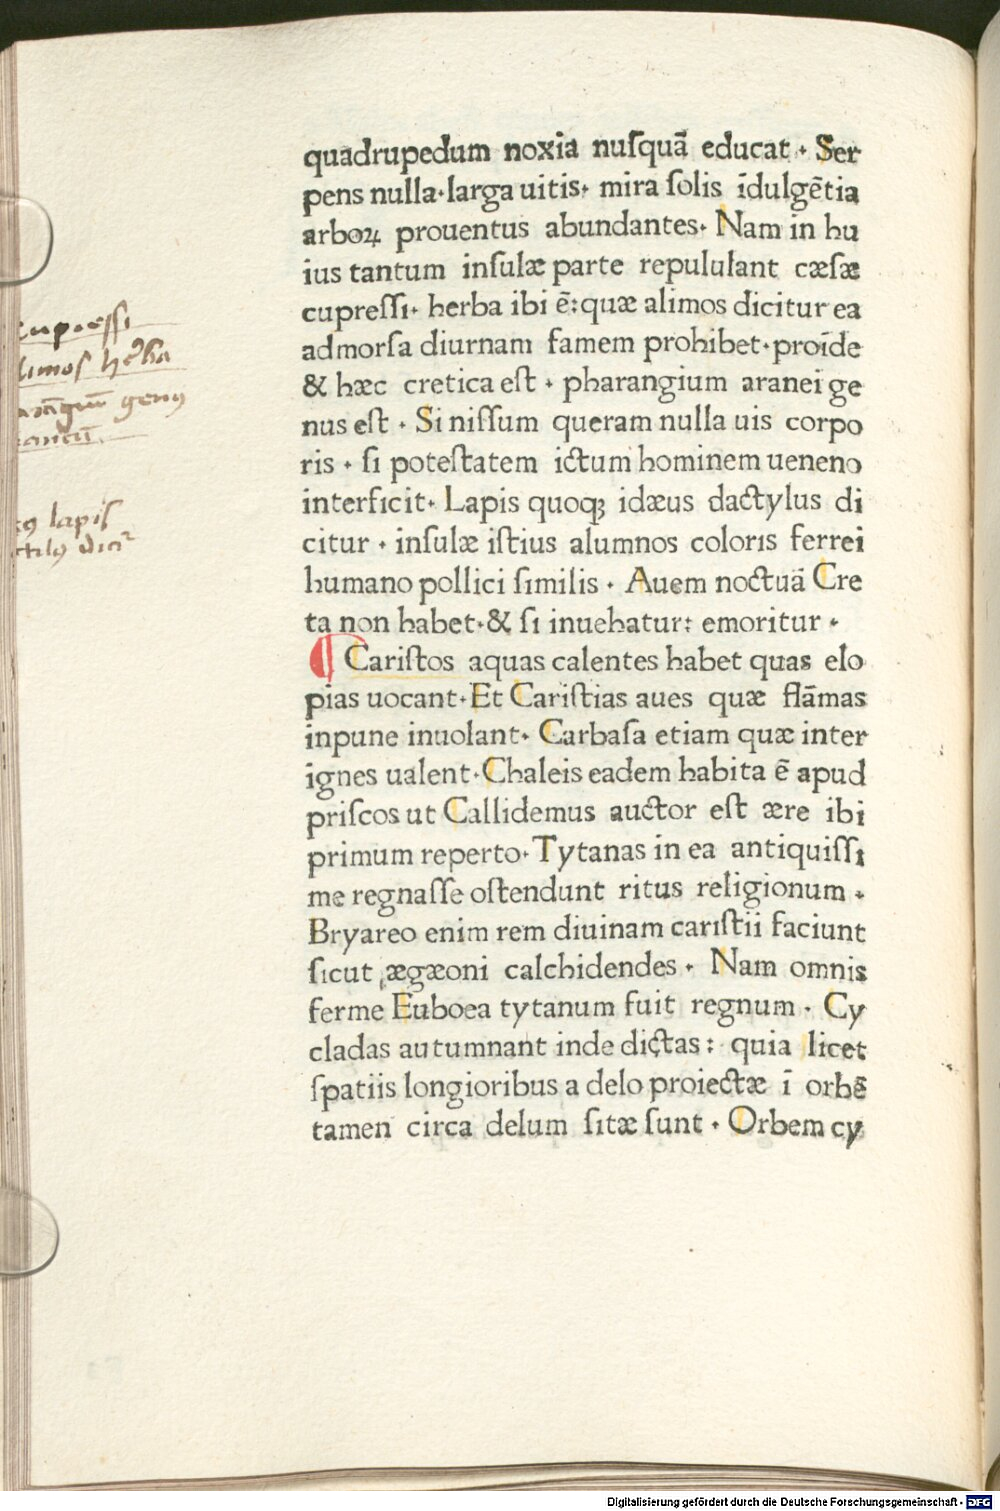 quadrupedum noxia nuſquā educat · Ser
pens nulla·larga uitis· mira ſolis īdulgētia
arboꝝ prouentus abundantes· Nam in hu
ius tantum inſulæ parte repululant cæſæ
cupreſſi· herba ibi ē:quæ alimos dicitur ea
admorſa diurnam famem prohibet·proīde
& hæc cretica eſt · pharangium aranei ge
nus eſt · Si niſſum queram nulla uis corpo
ris · ſi poteſtatem ictum hominem ueneno
interficit· Lapis quoqꝫ idæus dactylus di
citur · inſulæ iſtius alumnos coloris ferrei
humano pollici ſimilis · Auem noctuā Cre
ta non habet·& ſi inuehatur: emoritur ·
¶ Cariſtos aquas calentes habet quas elo
pias uocant·Et Cariſtias aues quæ flāmas
inpune inuolant· Carbaſa etiam quæ inter
ignes ualent·Chaleis eadem habita ē apud
priſcos ut Callidemus auctor eſt ære ibi
primum reperto·Tytanas in ea antiquiſſi
me regnaſſe oſtendunt ritus religionum ·
Bryareo enim rem diuinam cariſtii faciunt
ſicut ægæoni calchidendes · Nam omnis
ferme Euboea tytanum fuit regnum · Cy
cladas autumnant inde dictas: quia licet
ſpatiis longioribus a delo proiectæ ī orbē
tamen circa delum ſitæ ſunt · Orbem cy
cupreſſi
limos herba
genus
lapis
Digitalisierung gefördert durch die Deutsche Forschungsgemeinschaft - DFG